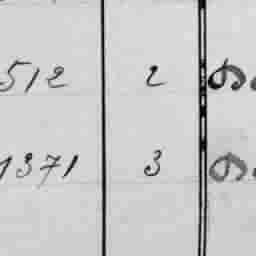 512 2
1371 3